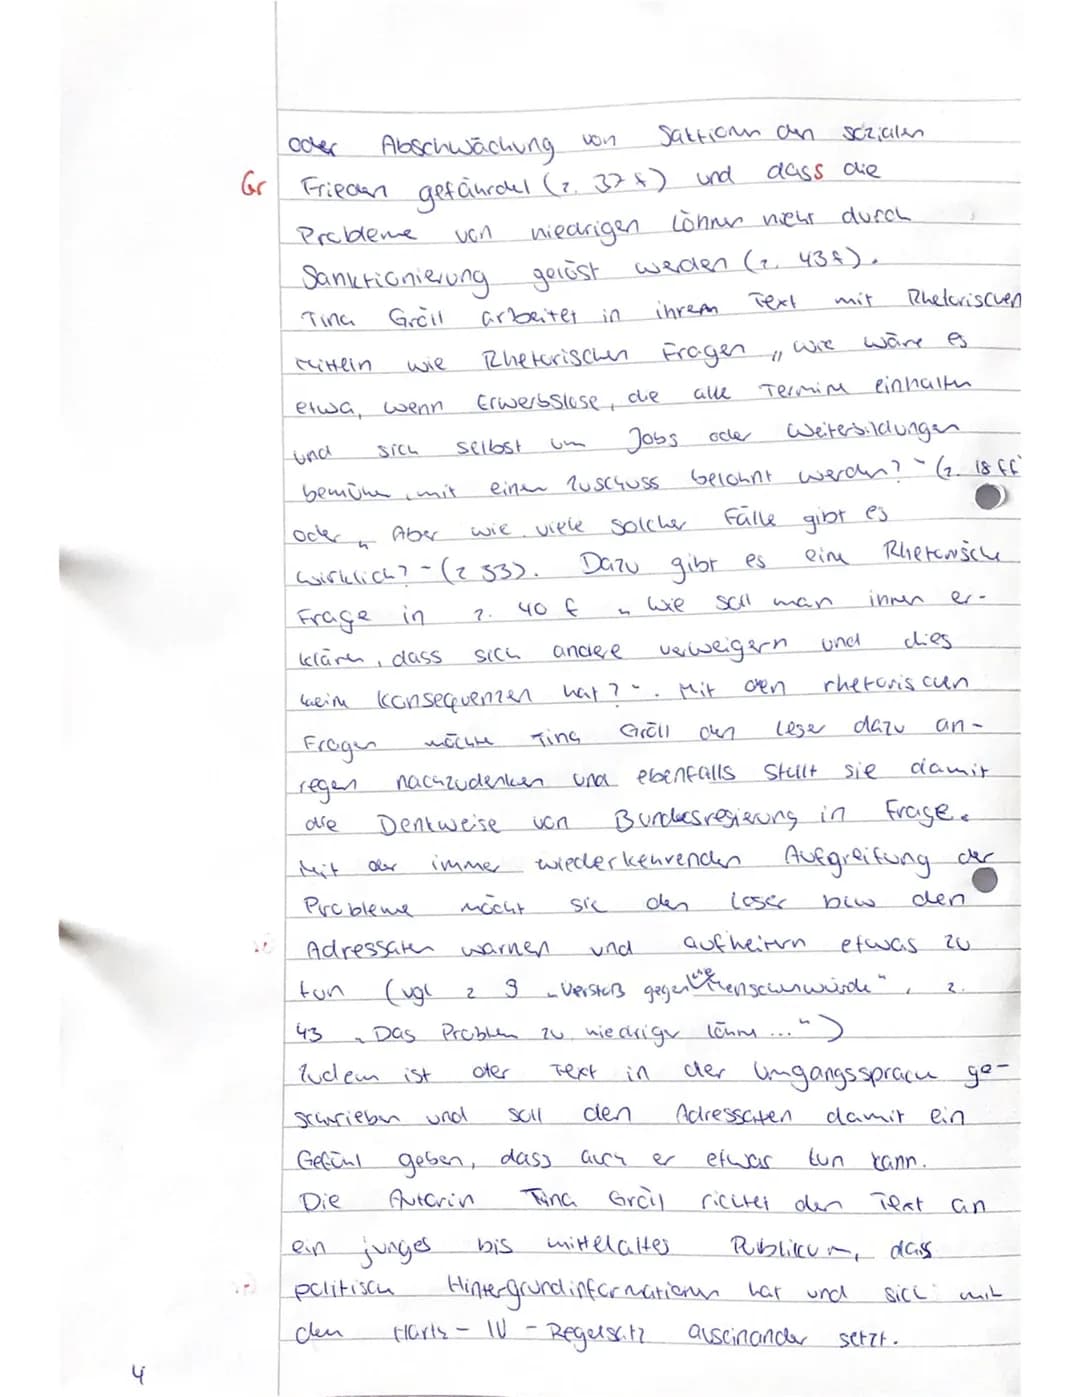 oder Abschwächung von Saktionen den sozialen
Gr Frieden gefährdet (z. 37 f) und dass die
Probleme von niedrigen Löhnen nicht durch
Sanktionierung gelöst werden (z. 43f).
Tina Groll arbeitet in ihrem Text mit Rhetorischen
Mitteln wie Rhetorischen Fragen „wie wäre es
etwa, wenn Erwerbslose, die alle Termine einhalten
und sich selbst um Jobs oder Weiterbildungen
bemühen, mit einen Zuschuss belohnt werden?" (z. 18 ff
oder „Aber wie viele solcher Fälle gibt es
wirklich?" (z 33). Dazu gibt es eine Rhetorische
Frage in z. 40 f „Wie soll man ihnen er-
klären, dass sich andere verweigern und dies
keine Konsequenzen hat?". Mit den rhetorischen
Fragen möchte Tina Groll den Leser dazu an-
regen nachzudenken und ebenfalls stellt sie damit
die Denkweise von Bundesregierung in Frage.
Mit der immer wiederkehrenden Aufgreifung der
Probleme möcht sie den Leser bzw den
Adressaten warnen und aufheitern etwas zu
tun (vgl z 9 „Verstoß gegen die Menschenwürde", z.
43 „Das Problem zu niedriger Löhne ...")
Zudem ist der Text in der Umgangssprache ge-
schrieben und soll den Adressaten damit ein
Gefühl geben, dass auch er etwas tun kann.
Die Autorin Tina Groll richtet den Text an
ein junges bis mittelaltes Publikum, dass
politisch Hintergrundinformationen hat und sich mit
den Hartz-IV-Regelsatz auseinander setzt.
4